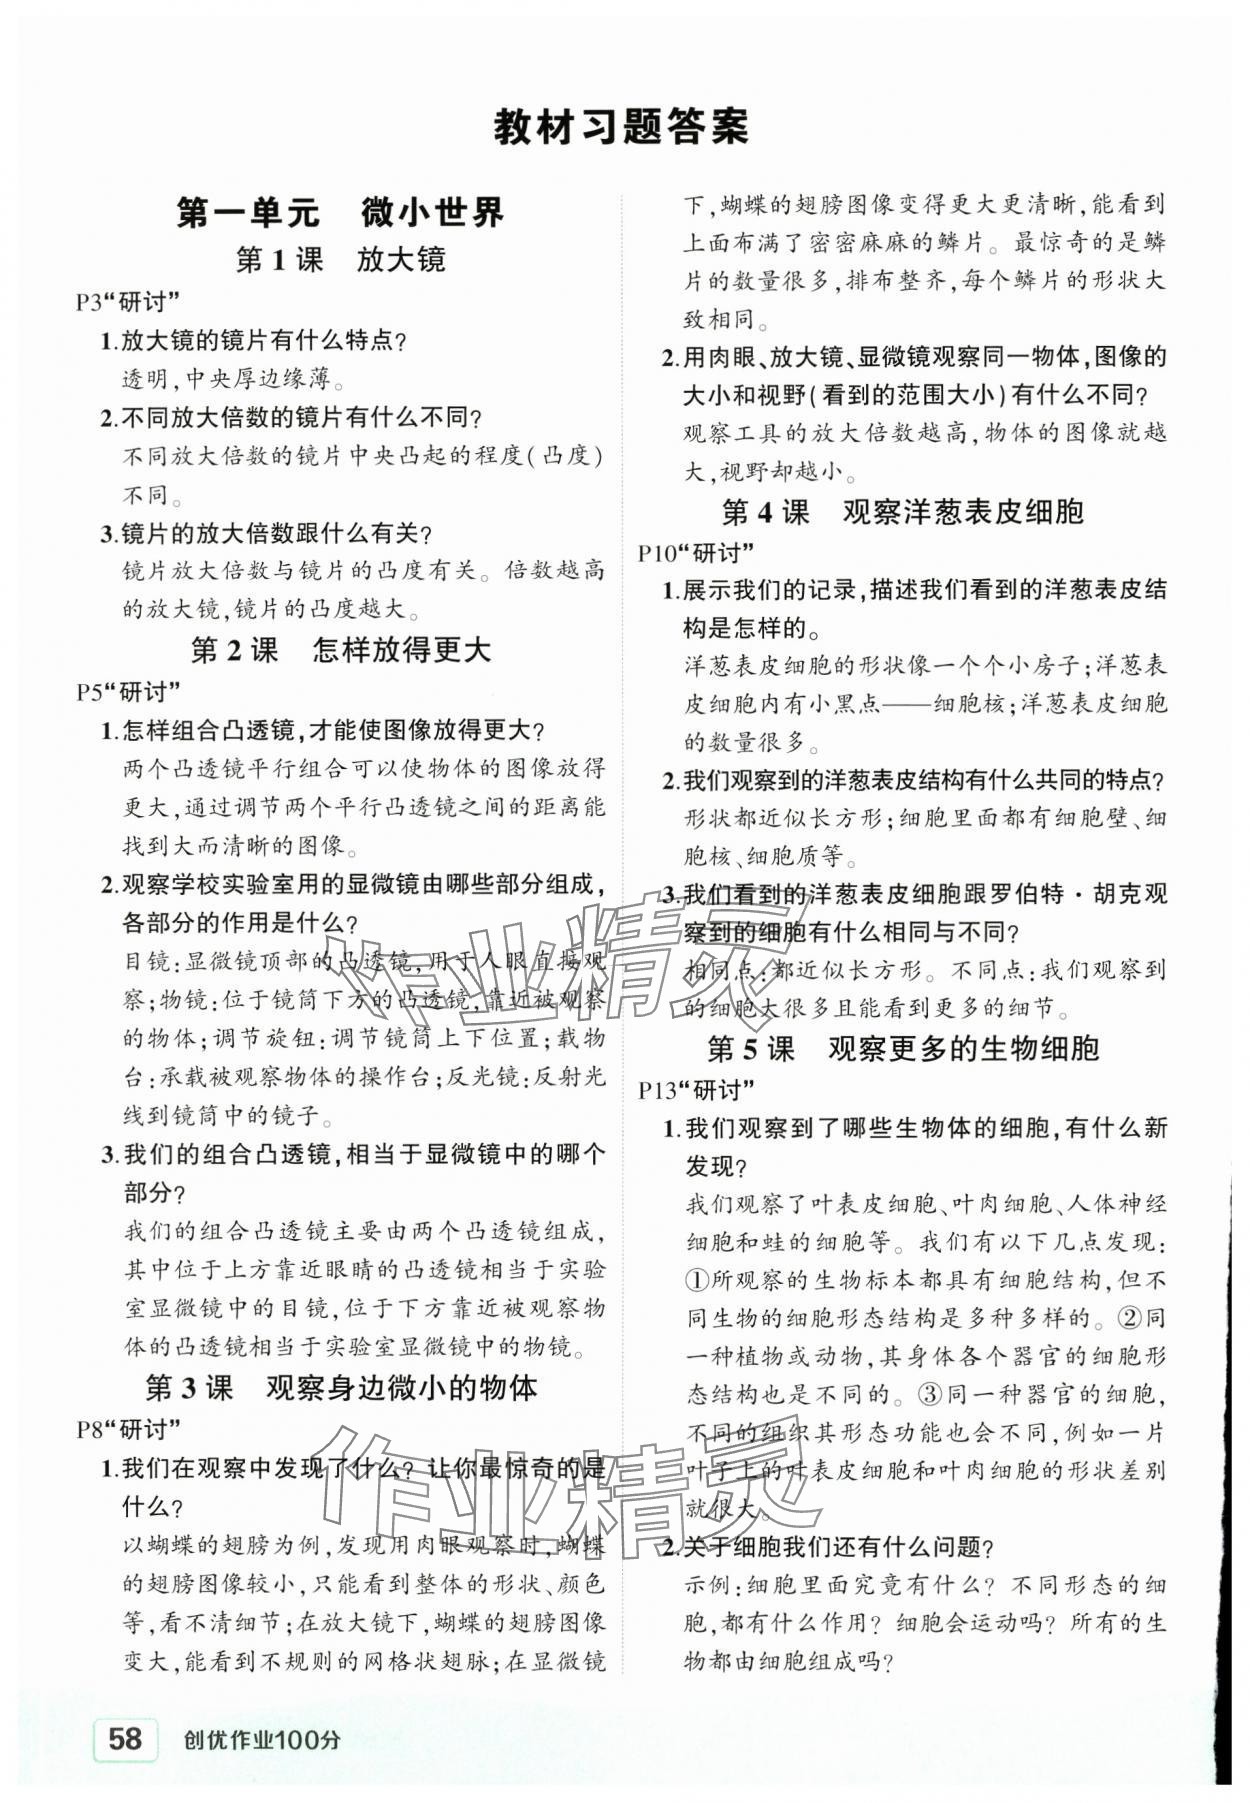 教材习题答案
第一单元　微小世界
第 1 课　放大镜
P3“研讨”
1.放大镜的镜片有什么特点?
透明,中央厚边缘薄。
2.不同放大倍数的镜片有什么不同?
不同放大倍数的镜片中央凸起的程度(凸度)
不同。
3.镜片的放大倍数跟什么有关?
镜片放大倍数与镜片的凸度有关。倍数越高
的放大镜,镜片的凸度越大。
第 2 课　怎样放得更大
P5“研讨”
1.怎样组合凸透镜,才能使图像放得更大?
两个凸透镜平行组合可以使物体的图像放得
更大,通过调节两个平行凸透镜之间的距离能
找到大而清晰的图像。
2.观察学校实验室用的显微镜由哪些部分组成,
各部分的作用是什么?
目镜:显微镜顶部的凸透镜,用于人眼直接观
察;物镜:位于镜筒下方的凸透镜,靠近被观察
的物体;调节旋钮:调节镜筒上下位置;载物
台:承载被观察物体的操作台;反光镜:反射光
线到镜筒中的镜子。
3.我们的组合凸透镜,相当于显微镜中的哪个
部分?
我们的组合凸透镜主要由两个凸透镜组成,
其中位于上方靠近眼睛的凸透镜相当于实验
室显微镜中的目镜,位于下方靠近被观察物
体的凸透镜相当于实验室显微镜中的物镜。
第 3 课　观察身边微小的物体
P8“研讨”
1.我们在观察中发现了什么? 让你最惊奇的是
什么?
以蝴蝶的翅膀为例,发现用肉眼观察时,蝴蝶
的翅膀图像较小,只能看到整体的形状、颜色
等,看不清细节;在放大镜下,蝴蝶的翅膀图像
变大,能看到不规则的网格状翅脉;在显微镜
下,蝴蝶的翅膀图像变得更大更清晰,能看到
上面布满了密密麻麻的鳞片。最惊奇的是鳞
片的数量很多,排布整齐,每个鳞片的形状大
致相同。
2.用肉眼、放大镜、显微镜观察同一物体,图像的
大小和视野(看到的范围大小)有什么不同?
观察工具的放大倍数越高,物体的图像就越
大,视野却越小。
第 4 课　观察洋葱表皮细胞
P10“研讨”
1.展示我们的记录,描述我们看到的洋葱表皮结
构是怎样的。
洋葱表皮细胞的形状像一个个小房子;洋葱表
皮细胞内有小黑点——细胞核;洋葱表皮细胞
的数量很多。
2.我们观察到的洋葱表皮结构有什么共同的特点?
形状都近似长方形;细胞里面都有细胞壁、细
胞核、细胞质等。
3.我们看到的洋葱表皮细胞跟罗伯特·胡克观
察到的细胞有什么相同与不同?
相同点:都近似长方形。不同点:我们观察到
的细胞大很多且能看到更多的细节。
第 5 课　观察更多的生物细胞
P13“研讨”
1.我们观察到了哪些生物体的细胞,有什么新
发现?
我们观察了叶表皮细胞、叶肉细胞、人体神经
细胞和蛙的细胞等。我们有以下几点发现:
①所观察的生物标本都具有细胞结构,但不
同生物的细胞形态结构是多种多样的。②同
一种植物或动物,其身体各个器官的细胞形
态结构也是不同的。③同一种器官的细胞,
不同的组织其形态功能也会不同,例如一片
叶子上的叶表皮细胞和叶肉细胞的形状差别
就很大。
2.关于细胞我们还有什么问题?
示例:细胞里面究竟有什么? 不同形态的细
胞,都有什么作用? 细胞会运动吗? 所有的生
物都由细胞组成吗?
作业精灵
作业精灵
58　创优作业100分